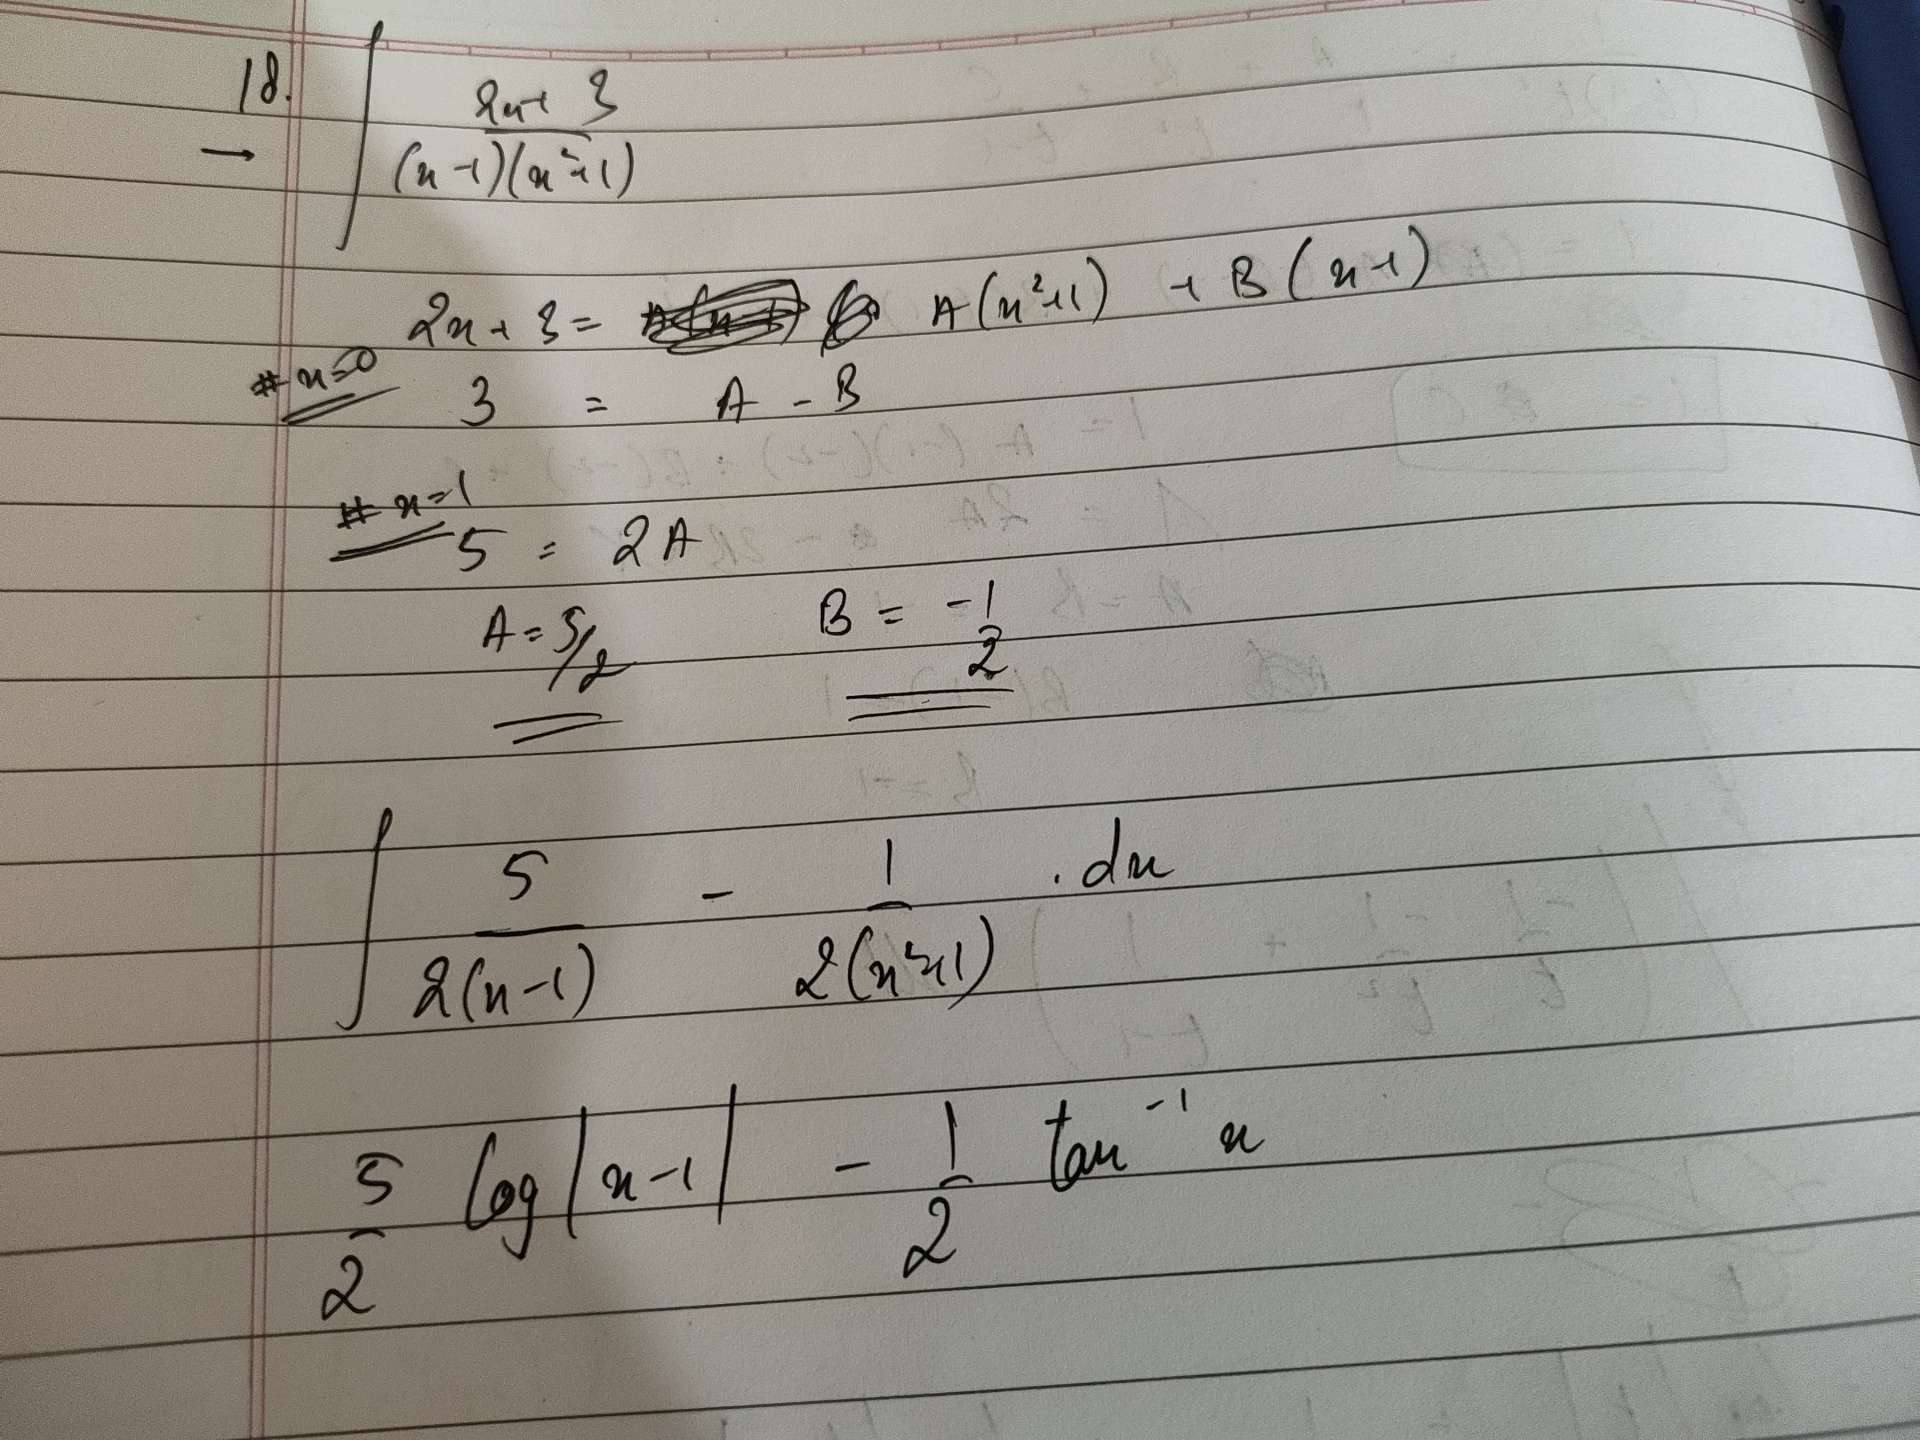 18. ∫ 2x+3
→ (x-1)(x²+1)
2x+3 = A(x²+1) + B(x-1)
# x=0 3 = A - B
# x=1
5 = 2A
A = 5/2 B = -1/2
∫ 5/2(x-1) - 1/2(x²+1) .dx
5/2 log|x-1| - 1/2 tan⁻¹ x